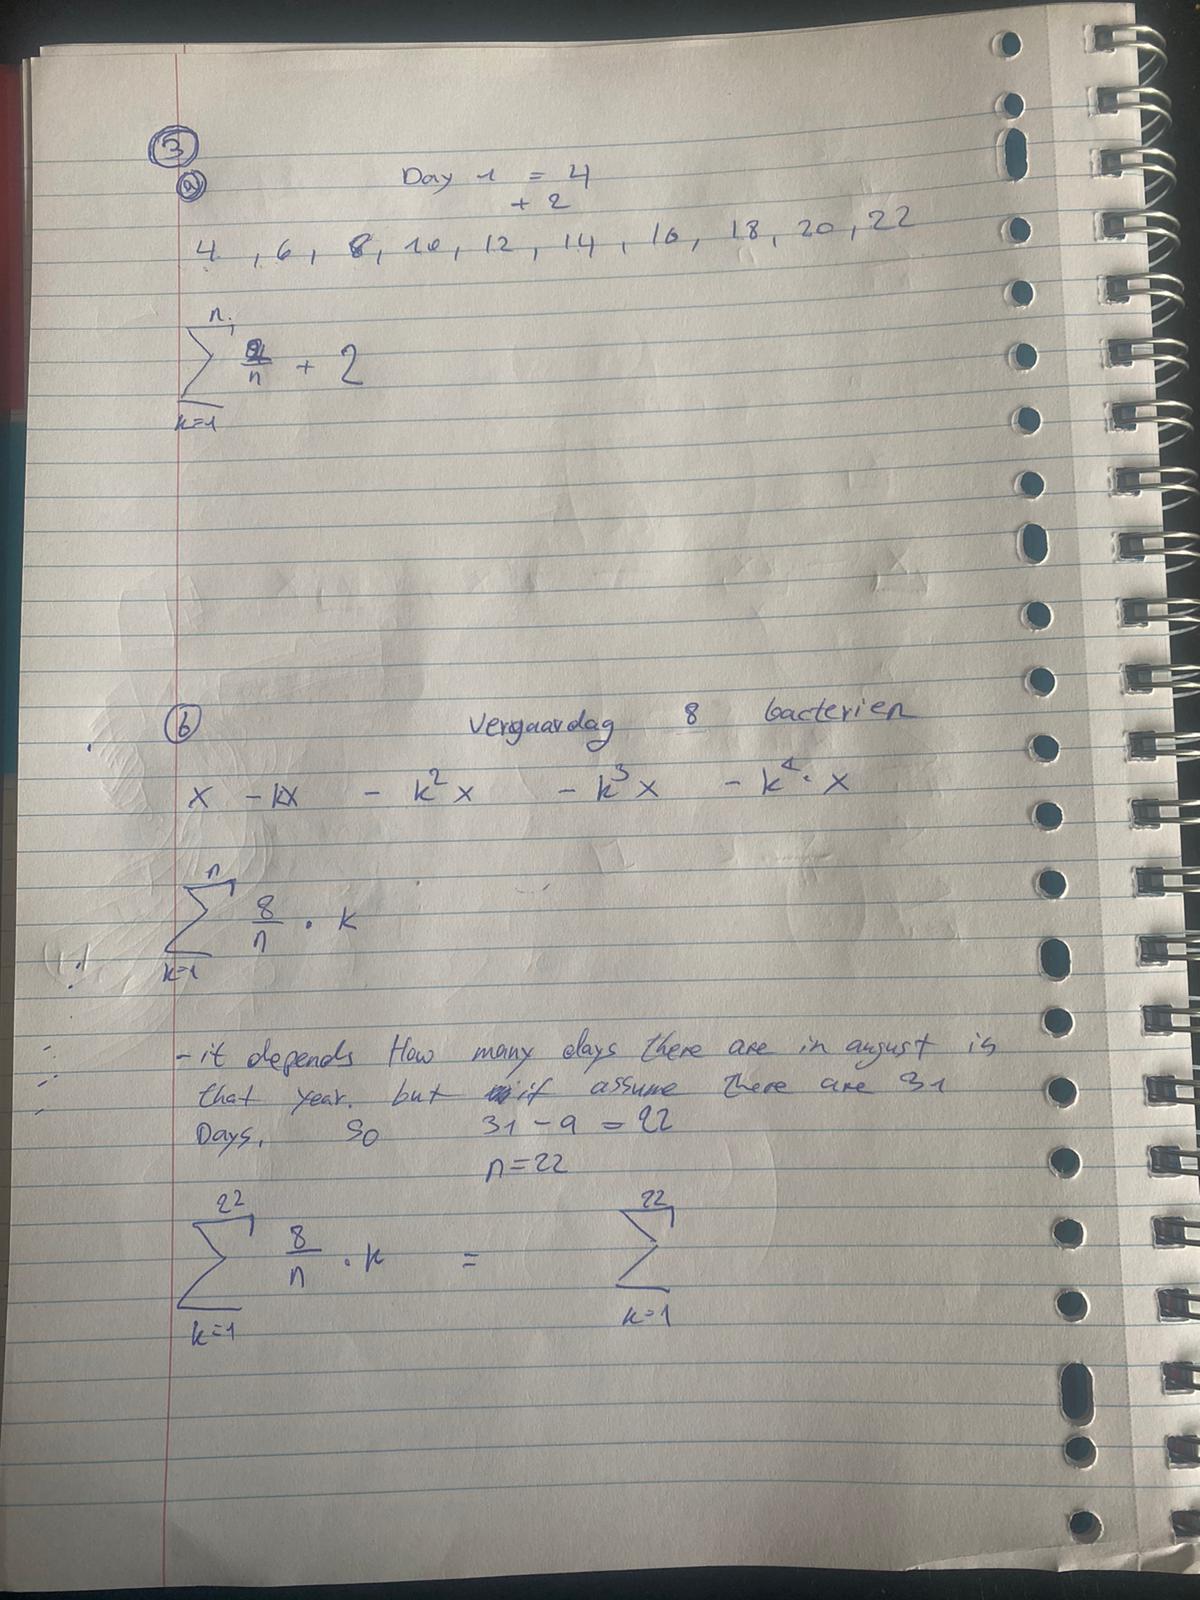 3
a
Day 1 = 4
+ 2
4, 6, 8, 10, 12, 14, 16, 18, 20, 22
n
∑ /n + 2
k=1
b Vergaardag 8 bacterien
x - kx - k²x - k³x - k⁴·x
n
∑ 8/n · k
k=1
- it depends How many days there are in august is
that year. but if assume there are 31
Days, So 31 - 9 = 22
n = 22
22 22
∑ 8/n · k = ∑
k=1 k=1